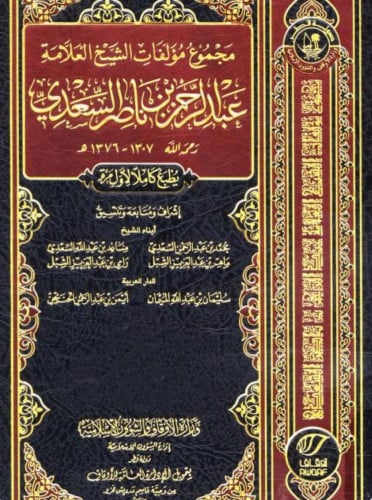 مجموع مؤلفات الشيخ العلامة
عبد الرحمن بن ناصر السعدي
رحمه الله ١٣٠٧ - ١٣٧٦ هـ
يطبع كاملا لأول مرة
إشراف ومتابعة وتنسيق
أبناء الشيخ
محمد بن عبد الرحمن السعدي مساعد بن عبد الله السعدي
ماهر بن عبد العزيز الشبل رامي بن عبد العزيز الشبل
الدار العربية
سليمان بن عبد الله الميمان أيمن بن عبد الرحمن الحنيحن
وزارة الأوقاف والشؤون الإسلامية
إدارة الشؤون الإسلامية
دولة قطر
بتمويل الإدارة العامة للأوقاف
من وصية قاسم درويش فخرو
أوقاف
AWQAF